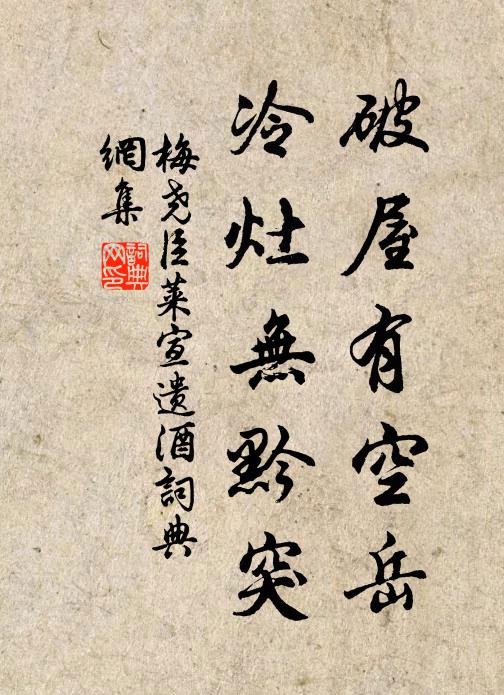 破屋有空岳
冷灶無黔突
梅尧臣莱宣遗酒詞典
網集
詞典网印